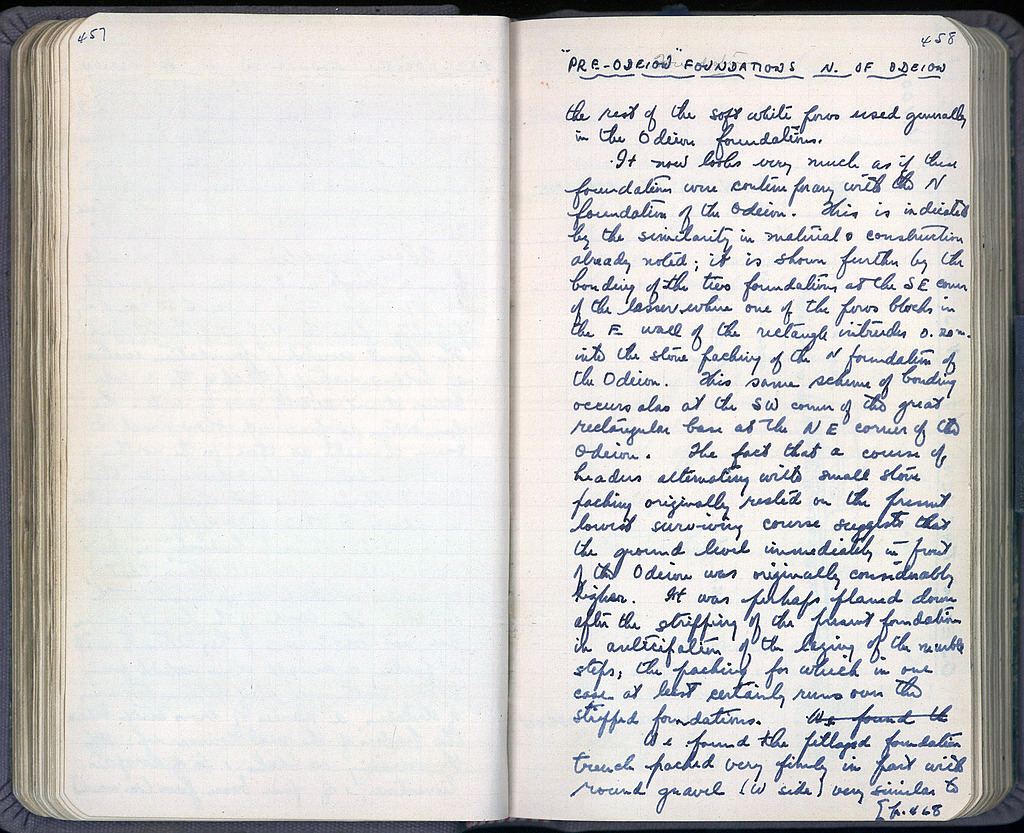 457
458
"PRE-ODEION" FOUNDATIONS N. OF ODEION
the rest of the soft white poros used generally
in the Odeion foundations.
It now looks very much as if these
foundations were contemporary with the N
foundation of the Odeion. This is indicated
by the similarity in material & construction
already noted; it is shown further by the
bonding of the two foundations at the SE corner
of the lesser where one of the poros blocks in
the E wall of the rectangle intrudes 0.20 m.
into the stone packing of the N foundation of
the Odeion. This same scheme of bonding
occurs also at the SW corner of the great
rectangular base at the NE corner of the
Odeion. The fact that a course of
headers alternating with small stone
packing originally rested on the present
lowest surviving course suggests that
the ground level immediately in front
of the Odeion was originally considerably
higher. It was perhaps planed down
after the stripping of the present foundations
in anticipation of the laying of the marble
steps, the packing for which in one
case at least certainly runs over the
stripped foundations. We found the
We found the pillaged foundation
trench packed very firmly in part with
round gravel (W side) very similar to
[p. 468